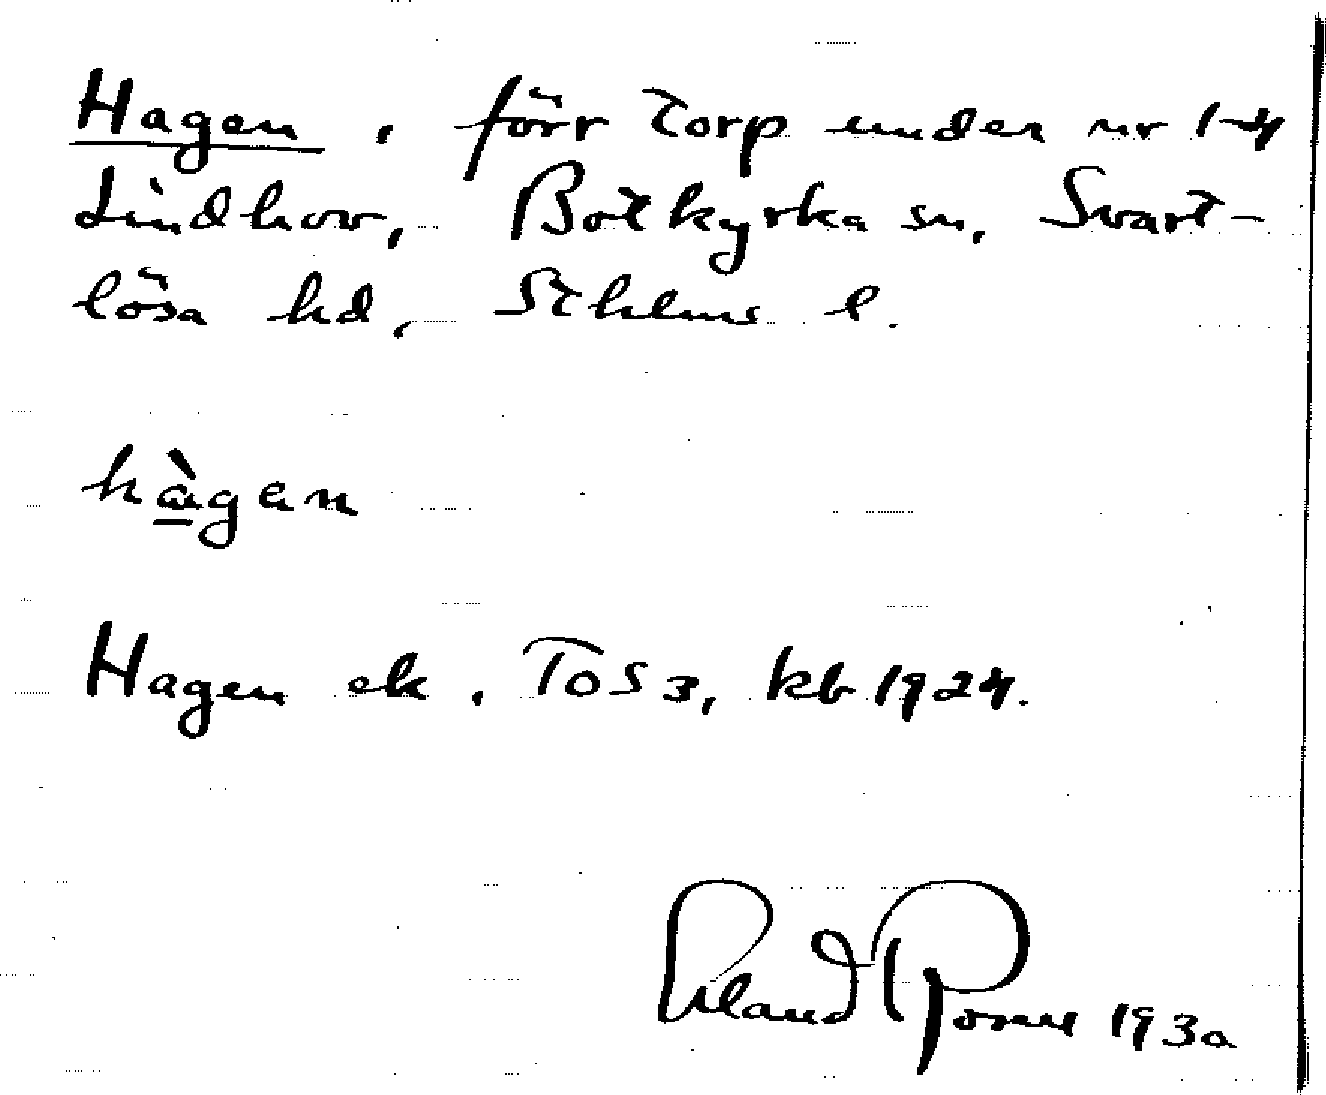 Hagen, förr torp under nr 1-4
Lindhov, Botkyrka sn, Svart-
lösa hd, Sthlms l.
hàgen
Hagen ek. TOS 3, kb 1924.
Erland Rosell 1930